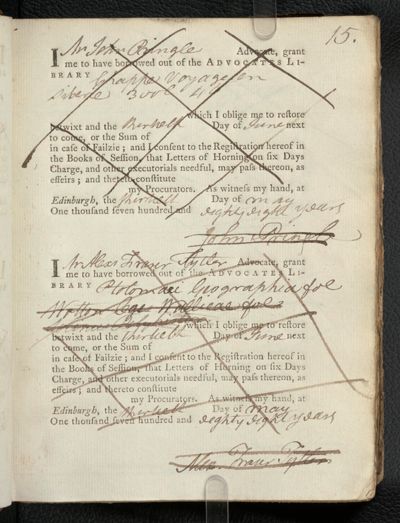 15.
I Mr John Pringle Advocate, grant
me to have borrowed out of the ADVOCATES LI-
BRARY Chappe Voyage en
which I oblige me to restore
betwixt and the thirtieth Day of June next
to come, or the Sum of
in case of Failzie; and I consent to the Registration hereof in
the Books of Session, that Letters of Horning on six Days
Charge, and other executorials needful, may pass thereon, as
effeirs; and thereto constitute
my Procurators. As witness my hand, at
Edinburgh, the thirtieth Day of may
One thousand seven hundred and eighty eight years
John Pringle
I Mr Alexr Fraser Tytler Advocate, grant
me to have borrowed out of the ADVOCATES LI-
BRARY Ptolomaei Geographia foe
Wotton Leges Wallicae foe
which I oblige me to restore
betwixt and the thirtieth Day of June next
to come, or the Sum of
in case of Failzie; and I consent to the Registration hereof in
the Books of Session, that Letters of Horning on six Days
Charge, and other executorials needful, may pass thereon, as
effeirs; and thereto constitute
my Procurators. As witness my hand, at
Edinburgh, the thirtieth Day of may
One thousand seven hundred and eighty eight years
Alex. Fraser Tytler